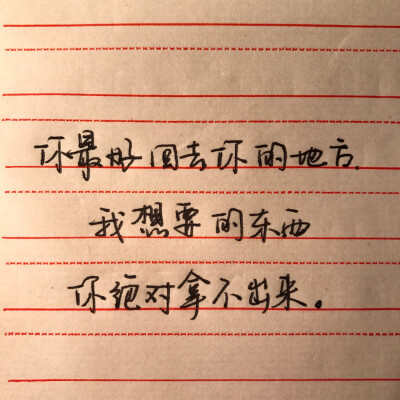 你最好回去你的地方.
我想要的东西
你绝对拿不出来。